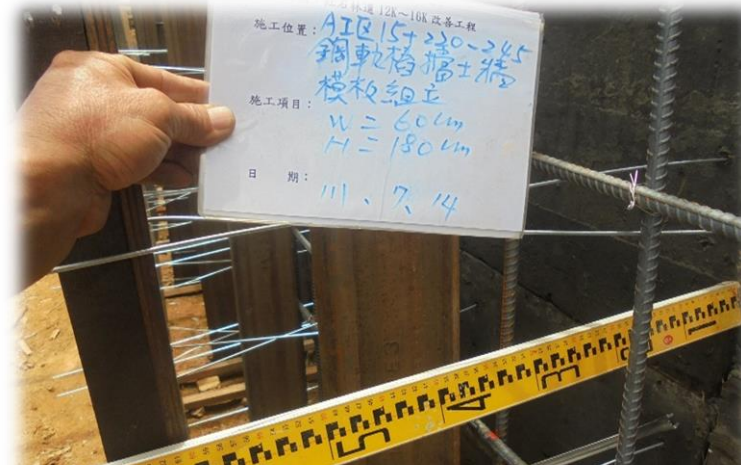 林道12K~16K改善工程
施工位置：A工区15+230~245
鋼軌樁擋土牆
施工項目：模板組立
W=60cm
H=180cm
日期：111、7、14
5 4 3 2 1